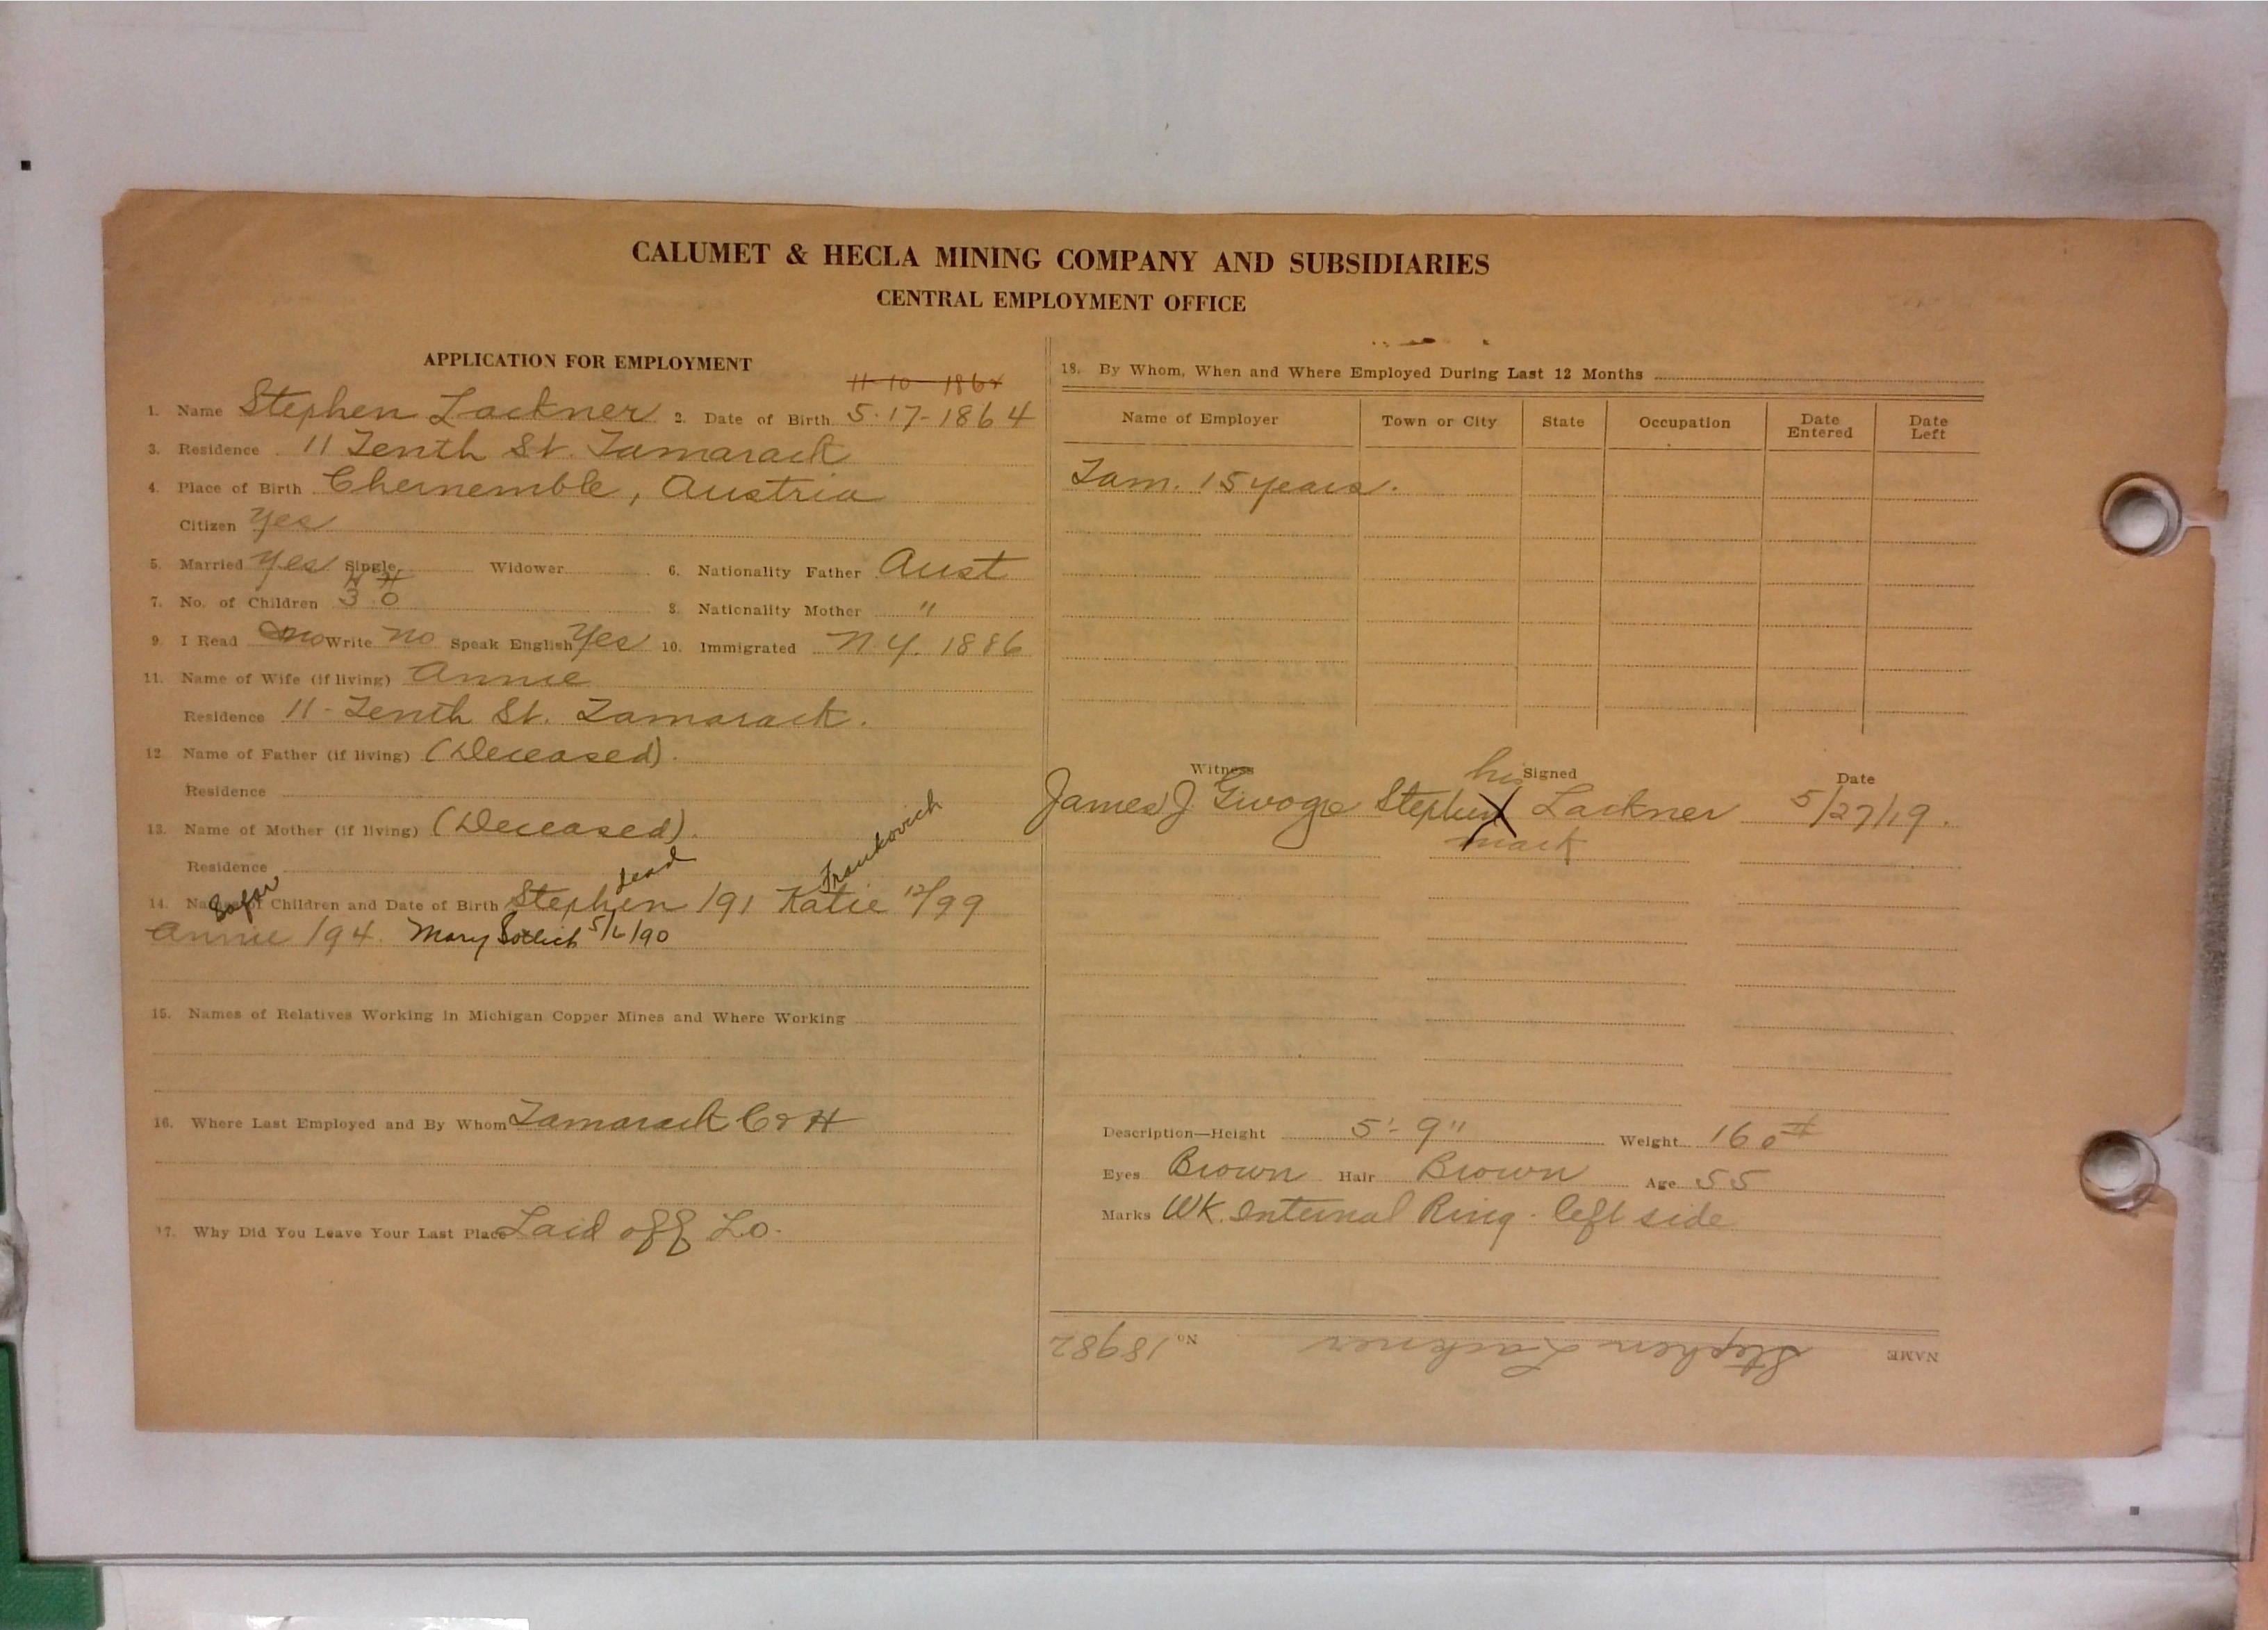 CALUMET & HECLA MINING COMPANY AND SUBSIDIARIES
CENTRAL EMPLOYMENT OFFICE
APPLICATION FOR EMPLOYMENT
11-10-1864
1. Name Stephen Lackner 2. Date of Birth 5-17-1864
3. Residence 11 Tenth St. Tamarack
4. Place of Birth Chernemble, Austria
Citizen Yes
5. Married Yes Single Widower 6. Nationality Father Aust
7. No. of Children 3 0 8. Nationality Mother "
9. I Read no Write no Speak English Yes 10. Immigrated N.Y. 1886
11. Name of Wife (if living) Annie
Residence 11- Tenth St. Tamarack.
12. Name of Father (if living) (Deceased).
Residence
13. Name of Mother (if living) (Deceased).
Residence
Dead Frankovich
14. Names of Children and Date of Birth Stephen /91 Katie 12/99
Annie /94. Mary 5/6/90
15. Names of Relatives Working in Michigan Copper Mines and Where Working
16. Where Last Employed and By Whom Tamarack C & H
17. Why Did You Leave Your Last Place Laid off Lo.
18. By Whom, When and Where Employed During Last 12 Months
Name of Employer Town or City State Occupation Date Entered Date Left
Tam. 15 years.
Witness Signed Date
his
James J. Stephen X Lackner 5/27/19.
mark
Description—Height 5'-9" Weight 160#
Eyes Brown Hair Brown Age 55
Marks WK. Internal Ring - left side
NAME Stephen Lackner No. 18982